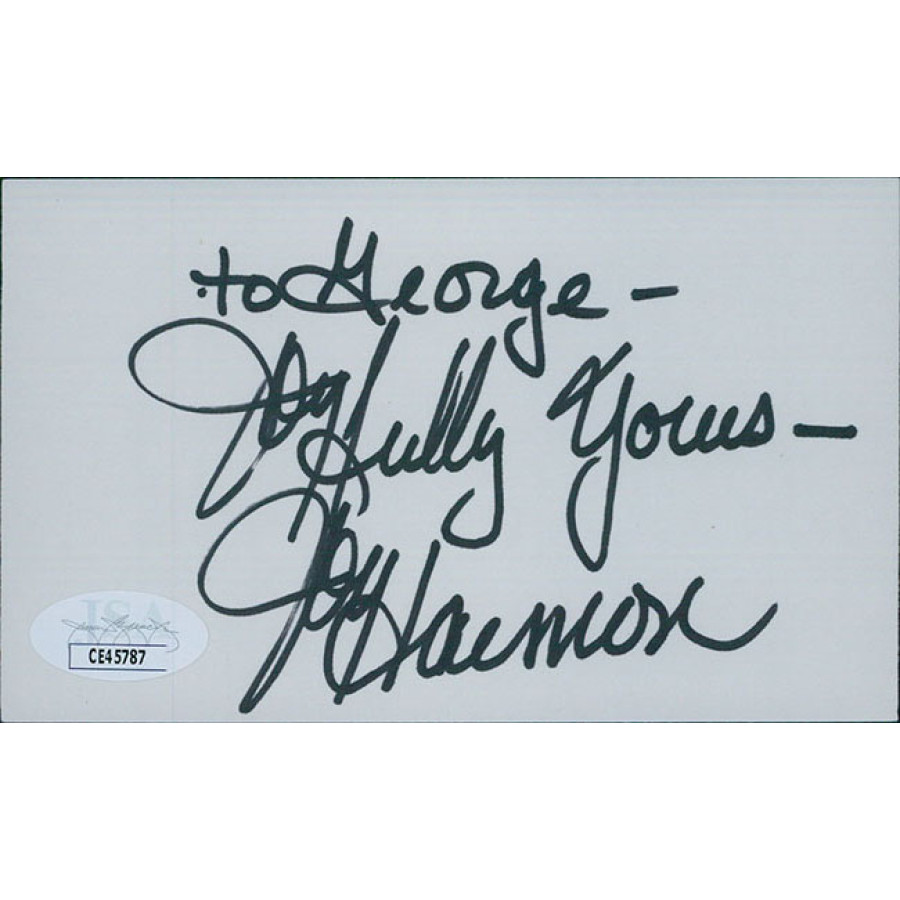 to George –
Joyfully Yours –
Joy Harmon
JSA
CE45787